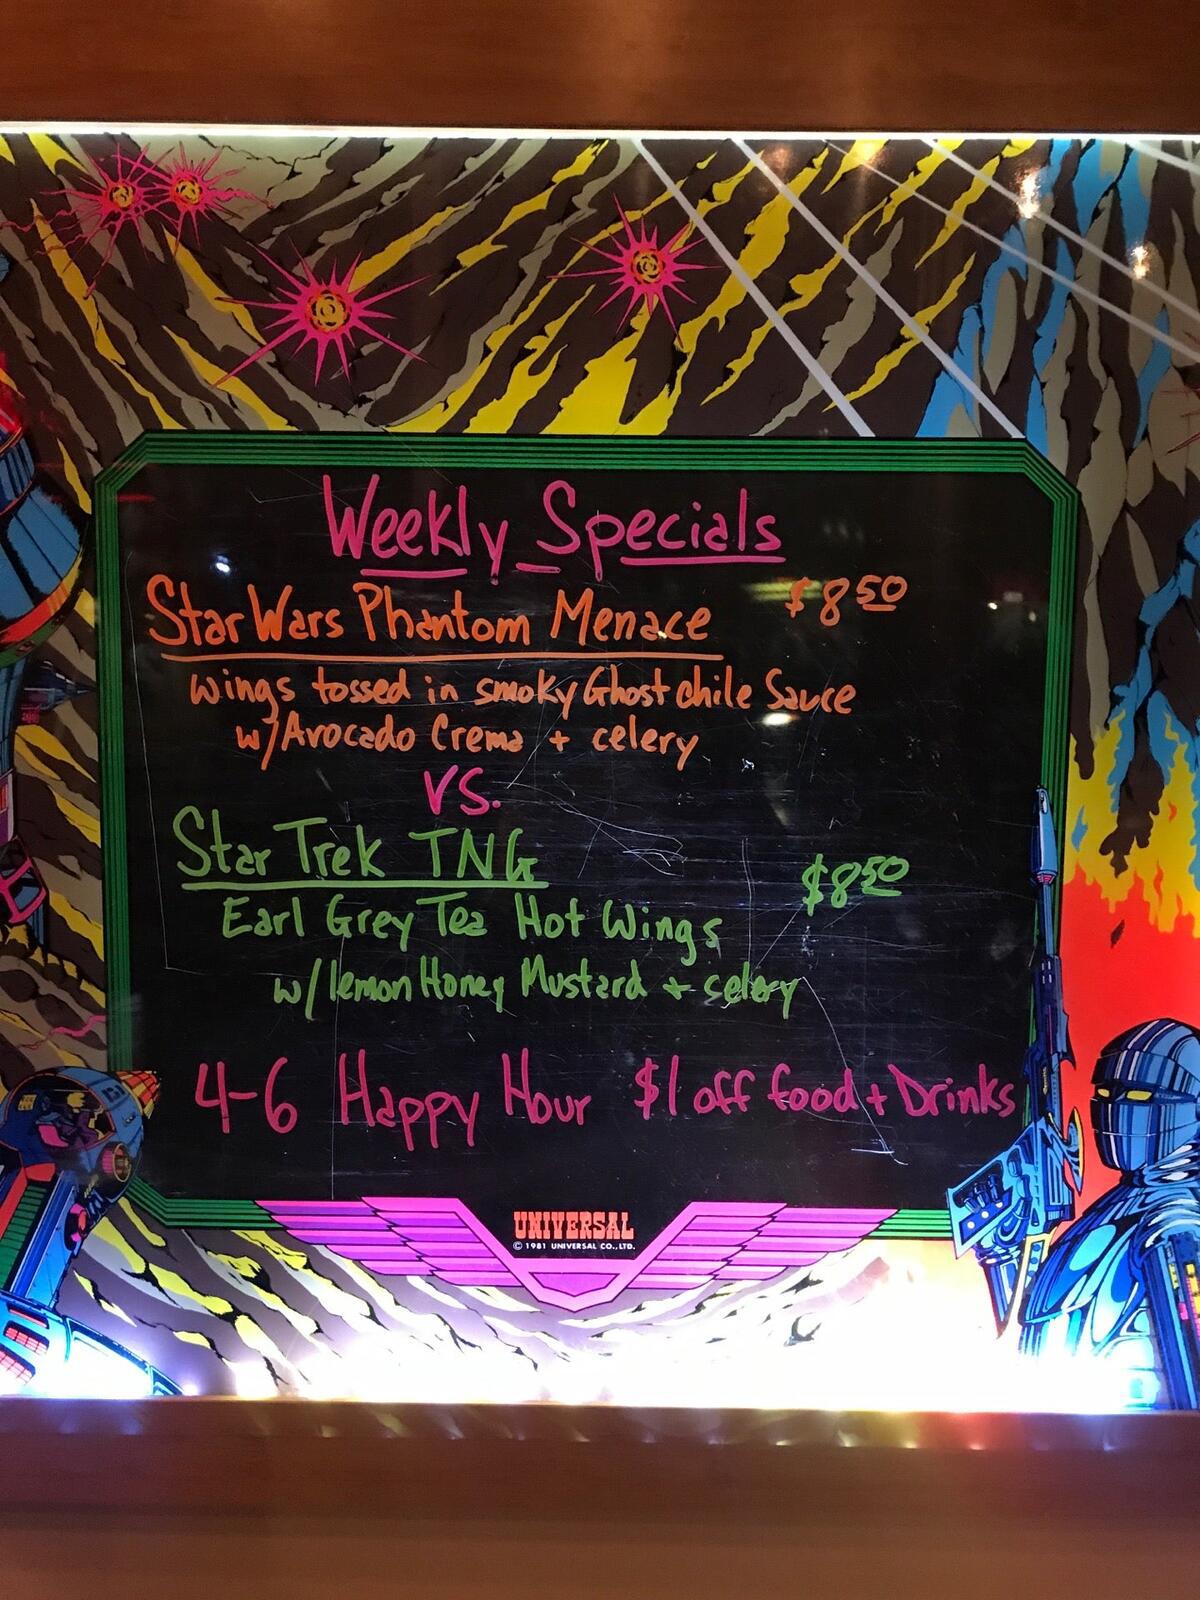 Weekly Specials
Star Wars Phantom Menace $8.50
wings tossed in smoky Ghost chile Sauce
w/Avocado Crema + celery
VS.
Star Trek TNG $8.50
Earl Grey Tea Hot Wings
w/lemon Honey Mustard + celery
4-6 Happy Hour $1 off food + Drinks
UNIVERSAL
© 1981 UNIVERSAL CO., LTD.